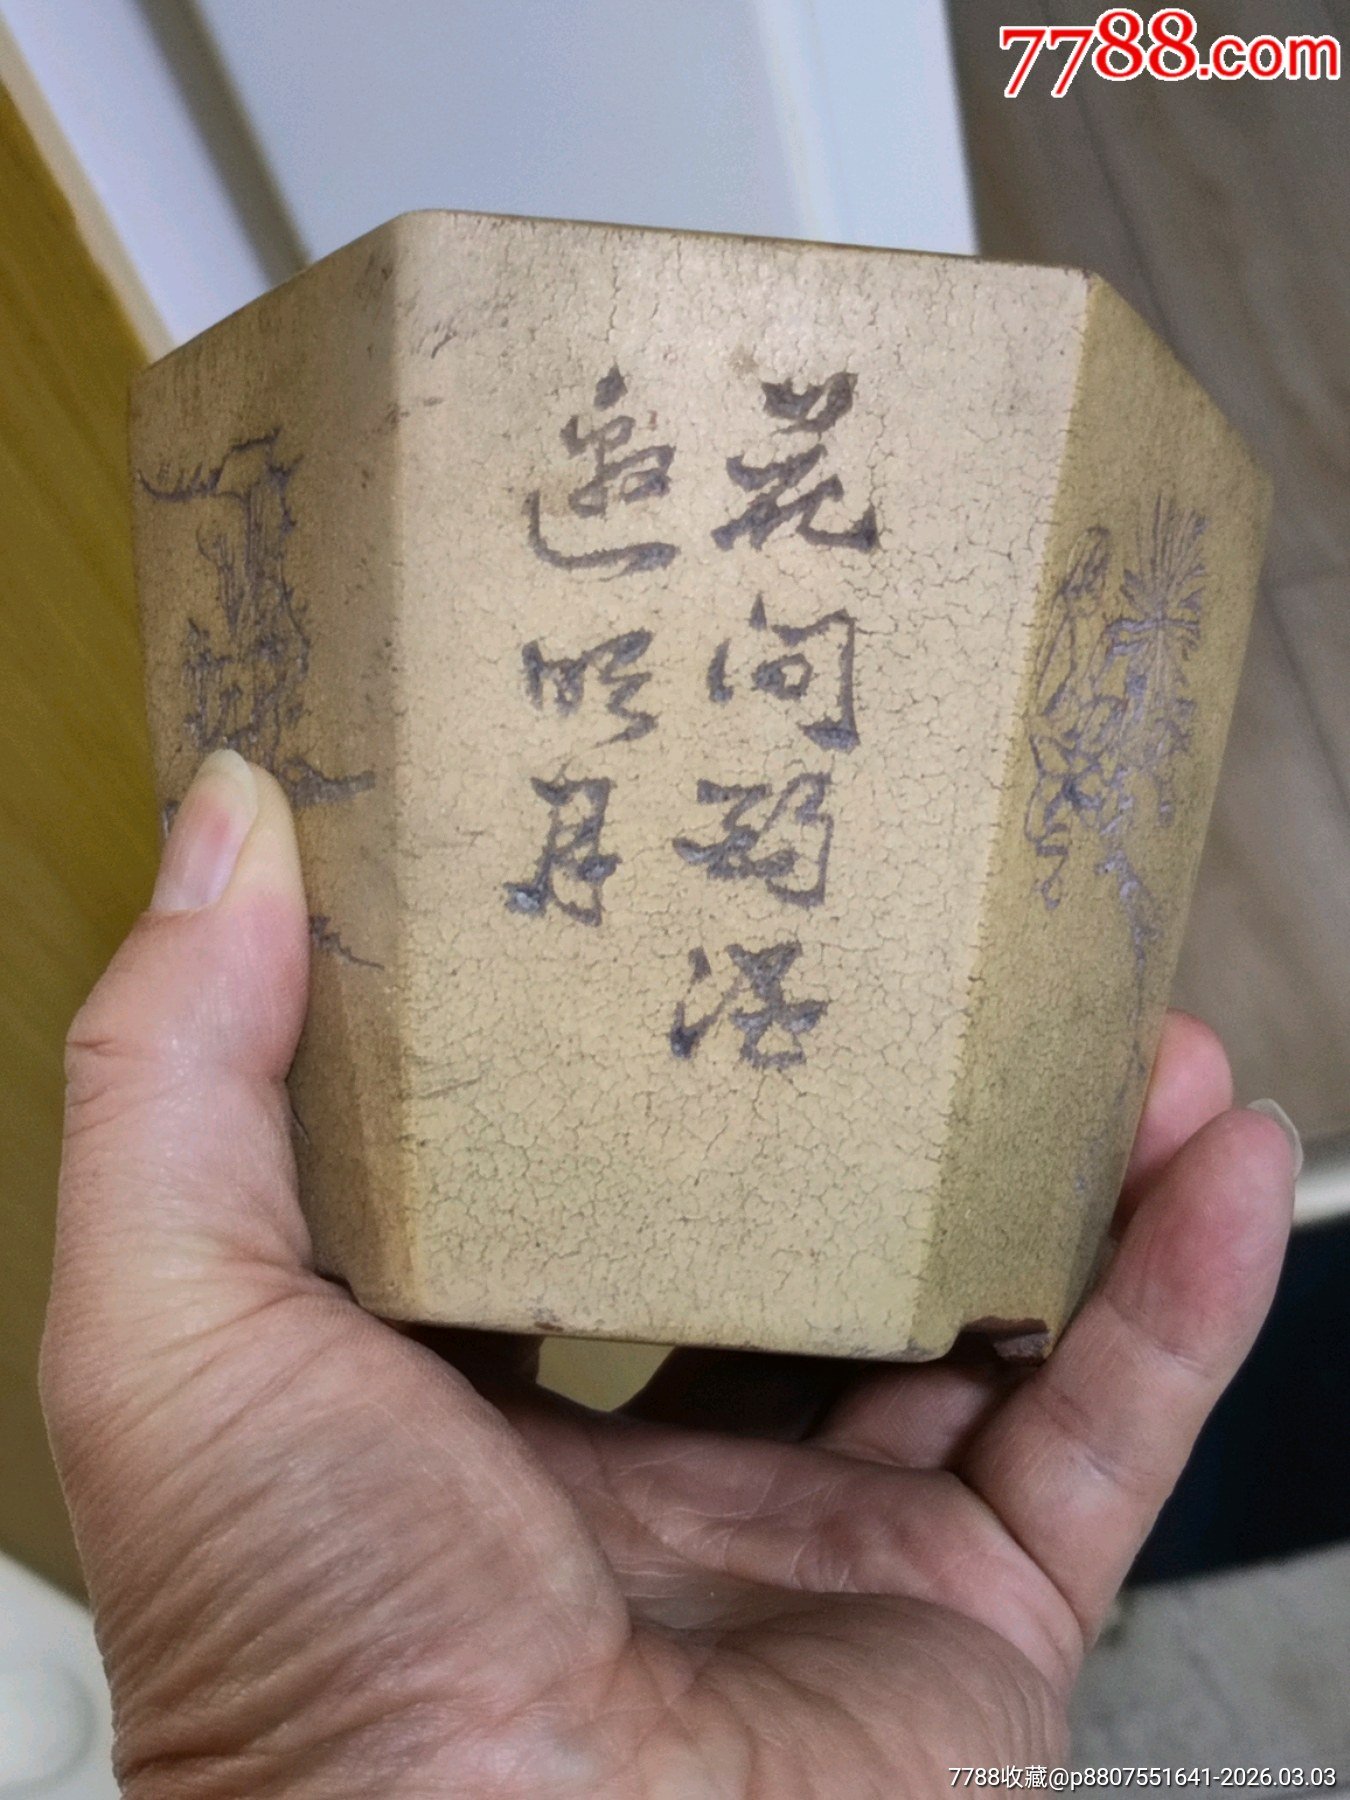 7788.com
花间酌酒
邀明月
7788收藏@p8807551641-2026.03.03